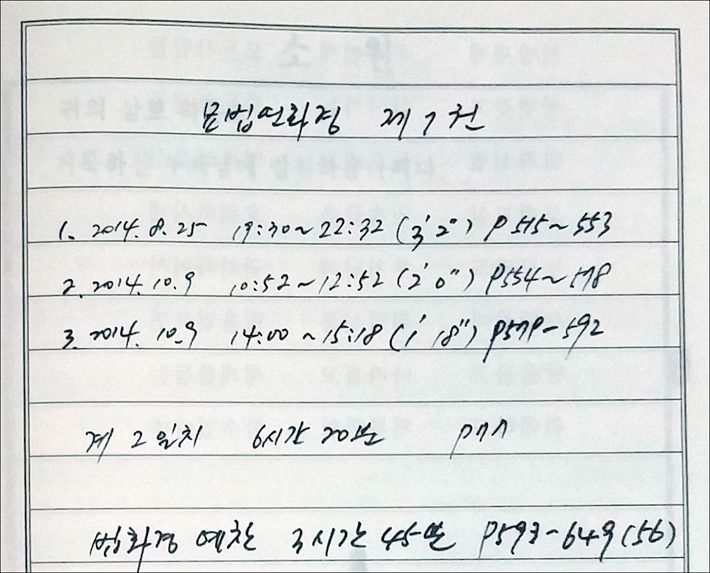 묘법연화경 제7권
1. 2014.8.25 19:30~22:32 (3' 2") P515~553
2. 2014.10.9 10:52~12:52 (2' 0") P554~578
3. 2014.10.9 14:00~15:18 (1' 18") P579-592
계 2일차 6시간 20분
법화경 예찬 3시간 45분 P593-649(56)